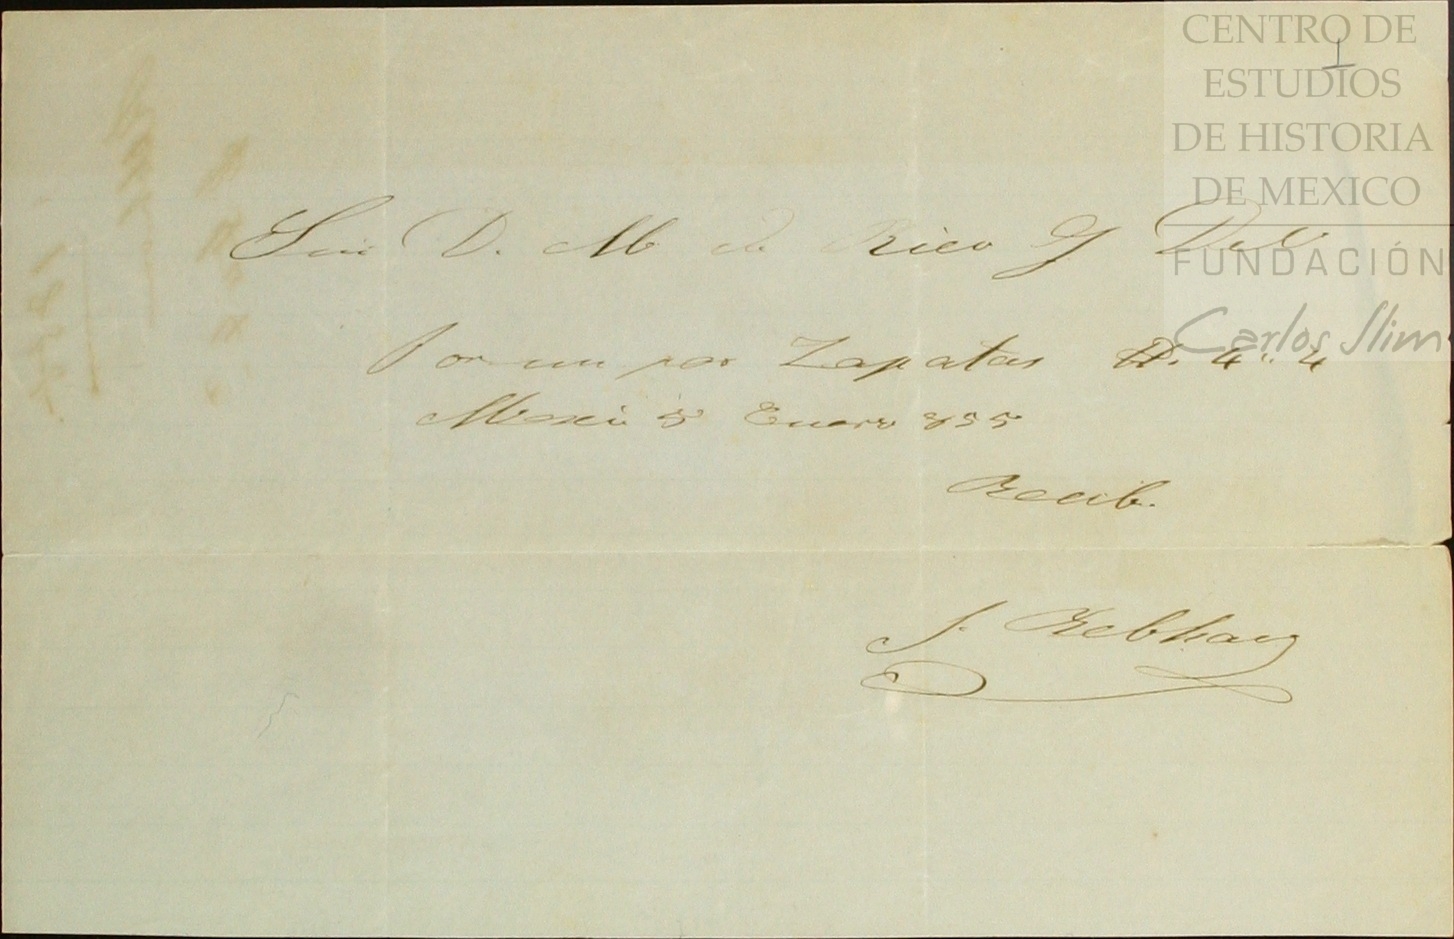 1
CENTRO DE
ESTUDIOS
DE HISTORIA
DE MEXICO
FUNDACIÓN
Carlos Slim
D. M Rico y
Por un par Zapatas 4 " 4
Mexi 5 Enero 855
Recib.
J. Rebhan